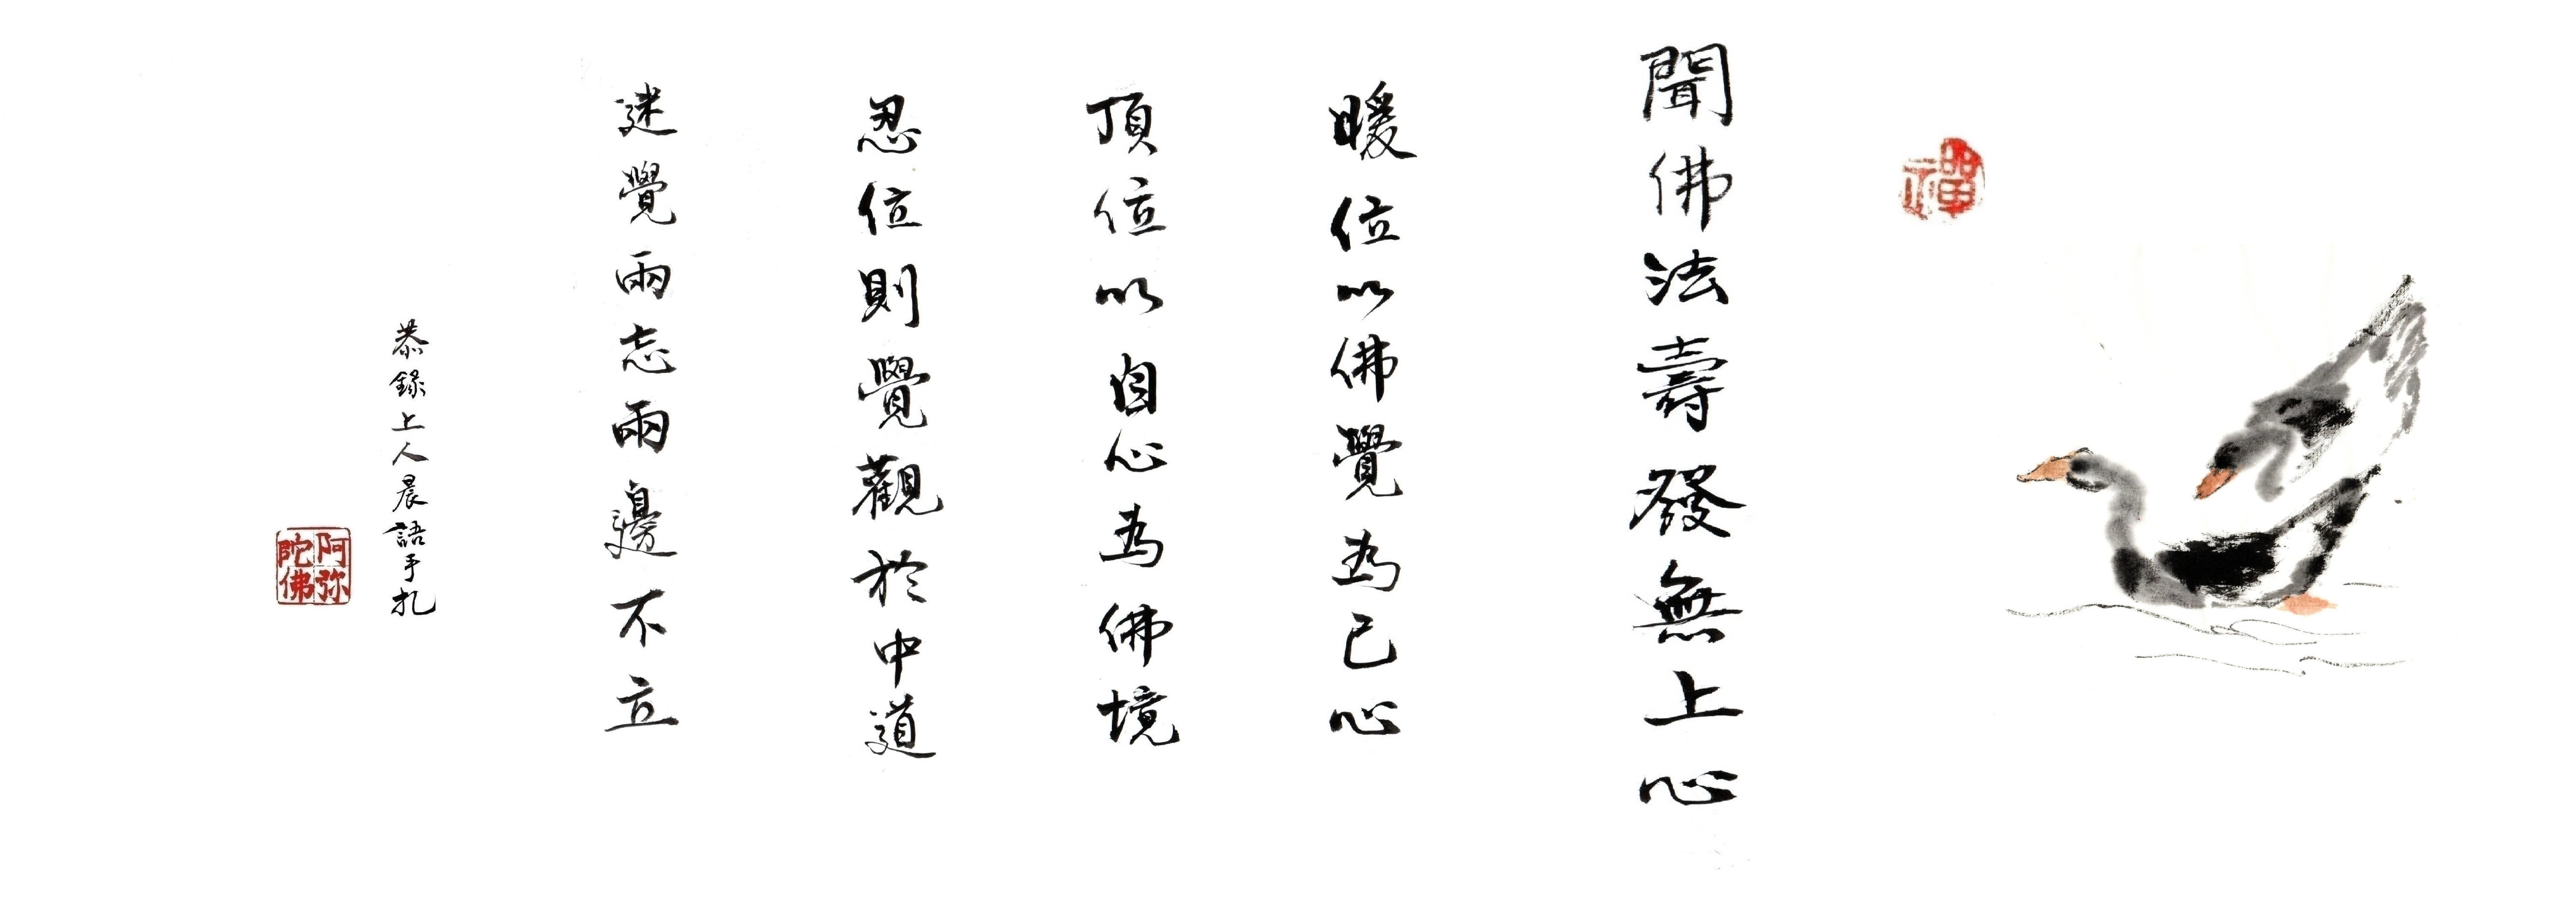 禪
聞佛法壽發無上心
暖位以佛覺為己心
頂位以自心為佛境
忍位則覺觀於中道
迷覺兩忘兩邊不立
恭錄上人晨語手扎
阿弥陀佛